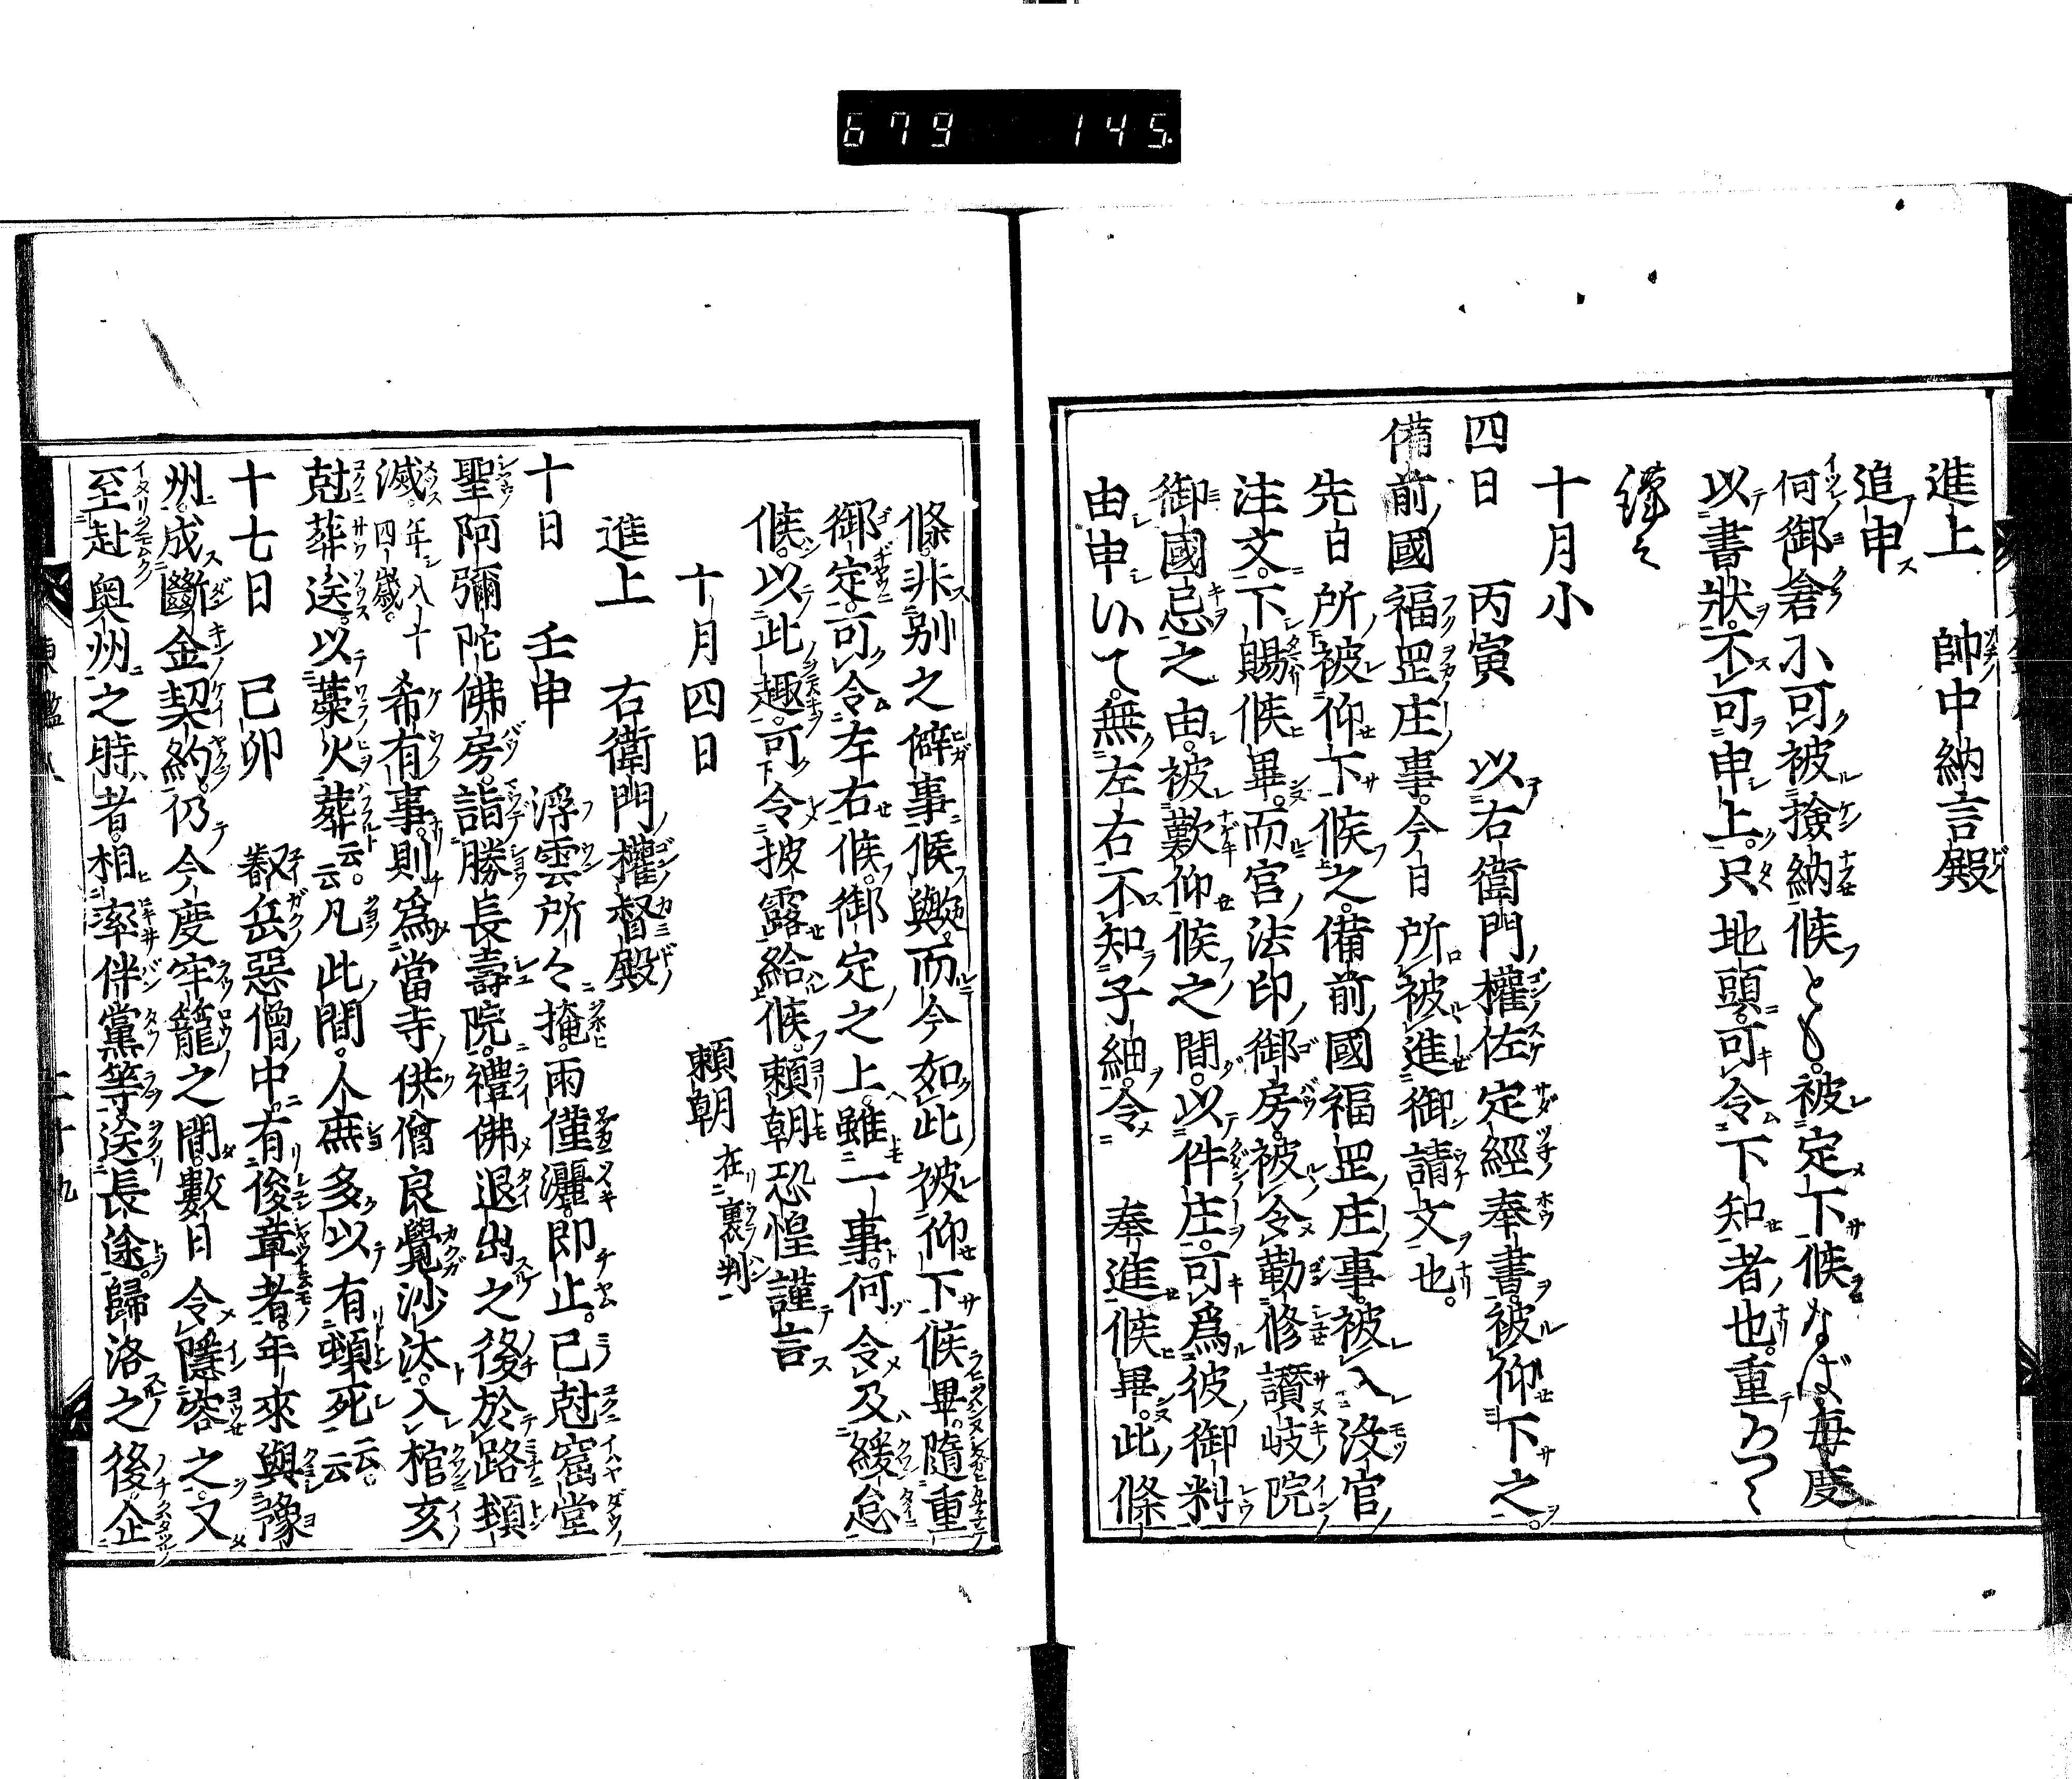 679 145
進上 帥中納言殿
追申
何御倉小可被撿納候とも。被定下候なば。每度
以書狀。不可申上。只地頭。可令下知者也。重
謹々
十月小
四日 丙寅 以右衛門權佐定經奉書。被仰下之。
備前國福罡庄事。今日所被進御請文也。
先日所被仰下候之。備前國福罡庄事。被入沒官
注文。下賜候畢。而官法印御房。被令勤修讃岐院
御國忌之由。被歎仰候之間。以件庄。可爲彼御料
由申て。無左右不知子細。令奉進候畢。此條
條。非別之僻事候歟。而今如此被仰下候畢。隨重
御定。可令左右候。御定之上。雖一事。何令及緩怠
候。以此趣。可令披露給候。賴朝恐惶謹言
十月四日 賴朝 在裏判
進上 右衛門權督殿
十日 壬申 浮雲所々掩。雨僅灑。即止。已尅窟堂
聖阿彌陀佛房。詣勝長壽院。禮佛退出之後。於路頭
滅。年八十四歲。希有事。則爲當寺供僧良覺沙汰。入棺亥
尅葬送。以藁火葬云云。凡此間。人庶多以有頓死云云。
十七日 己卯 叡岳惡僧中。有俊章者。年來與豫
州。成斷金契約。仍今度牢籠之間。數日令隱容之。又
至赴奧州之時者。相率伴黨等。送長途。歸洛之後。企